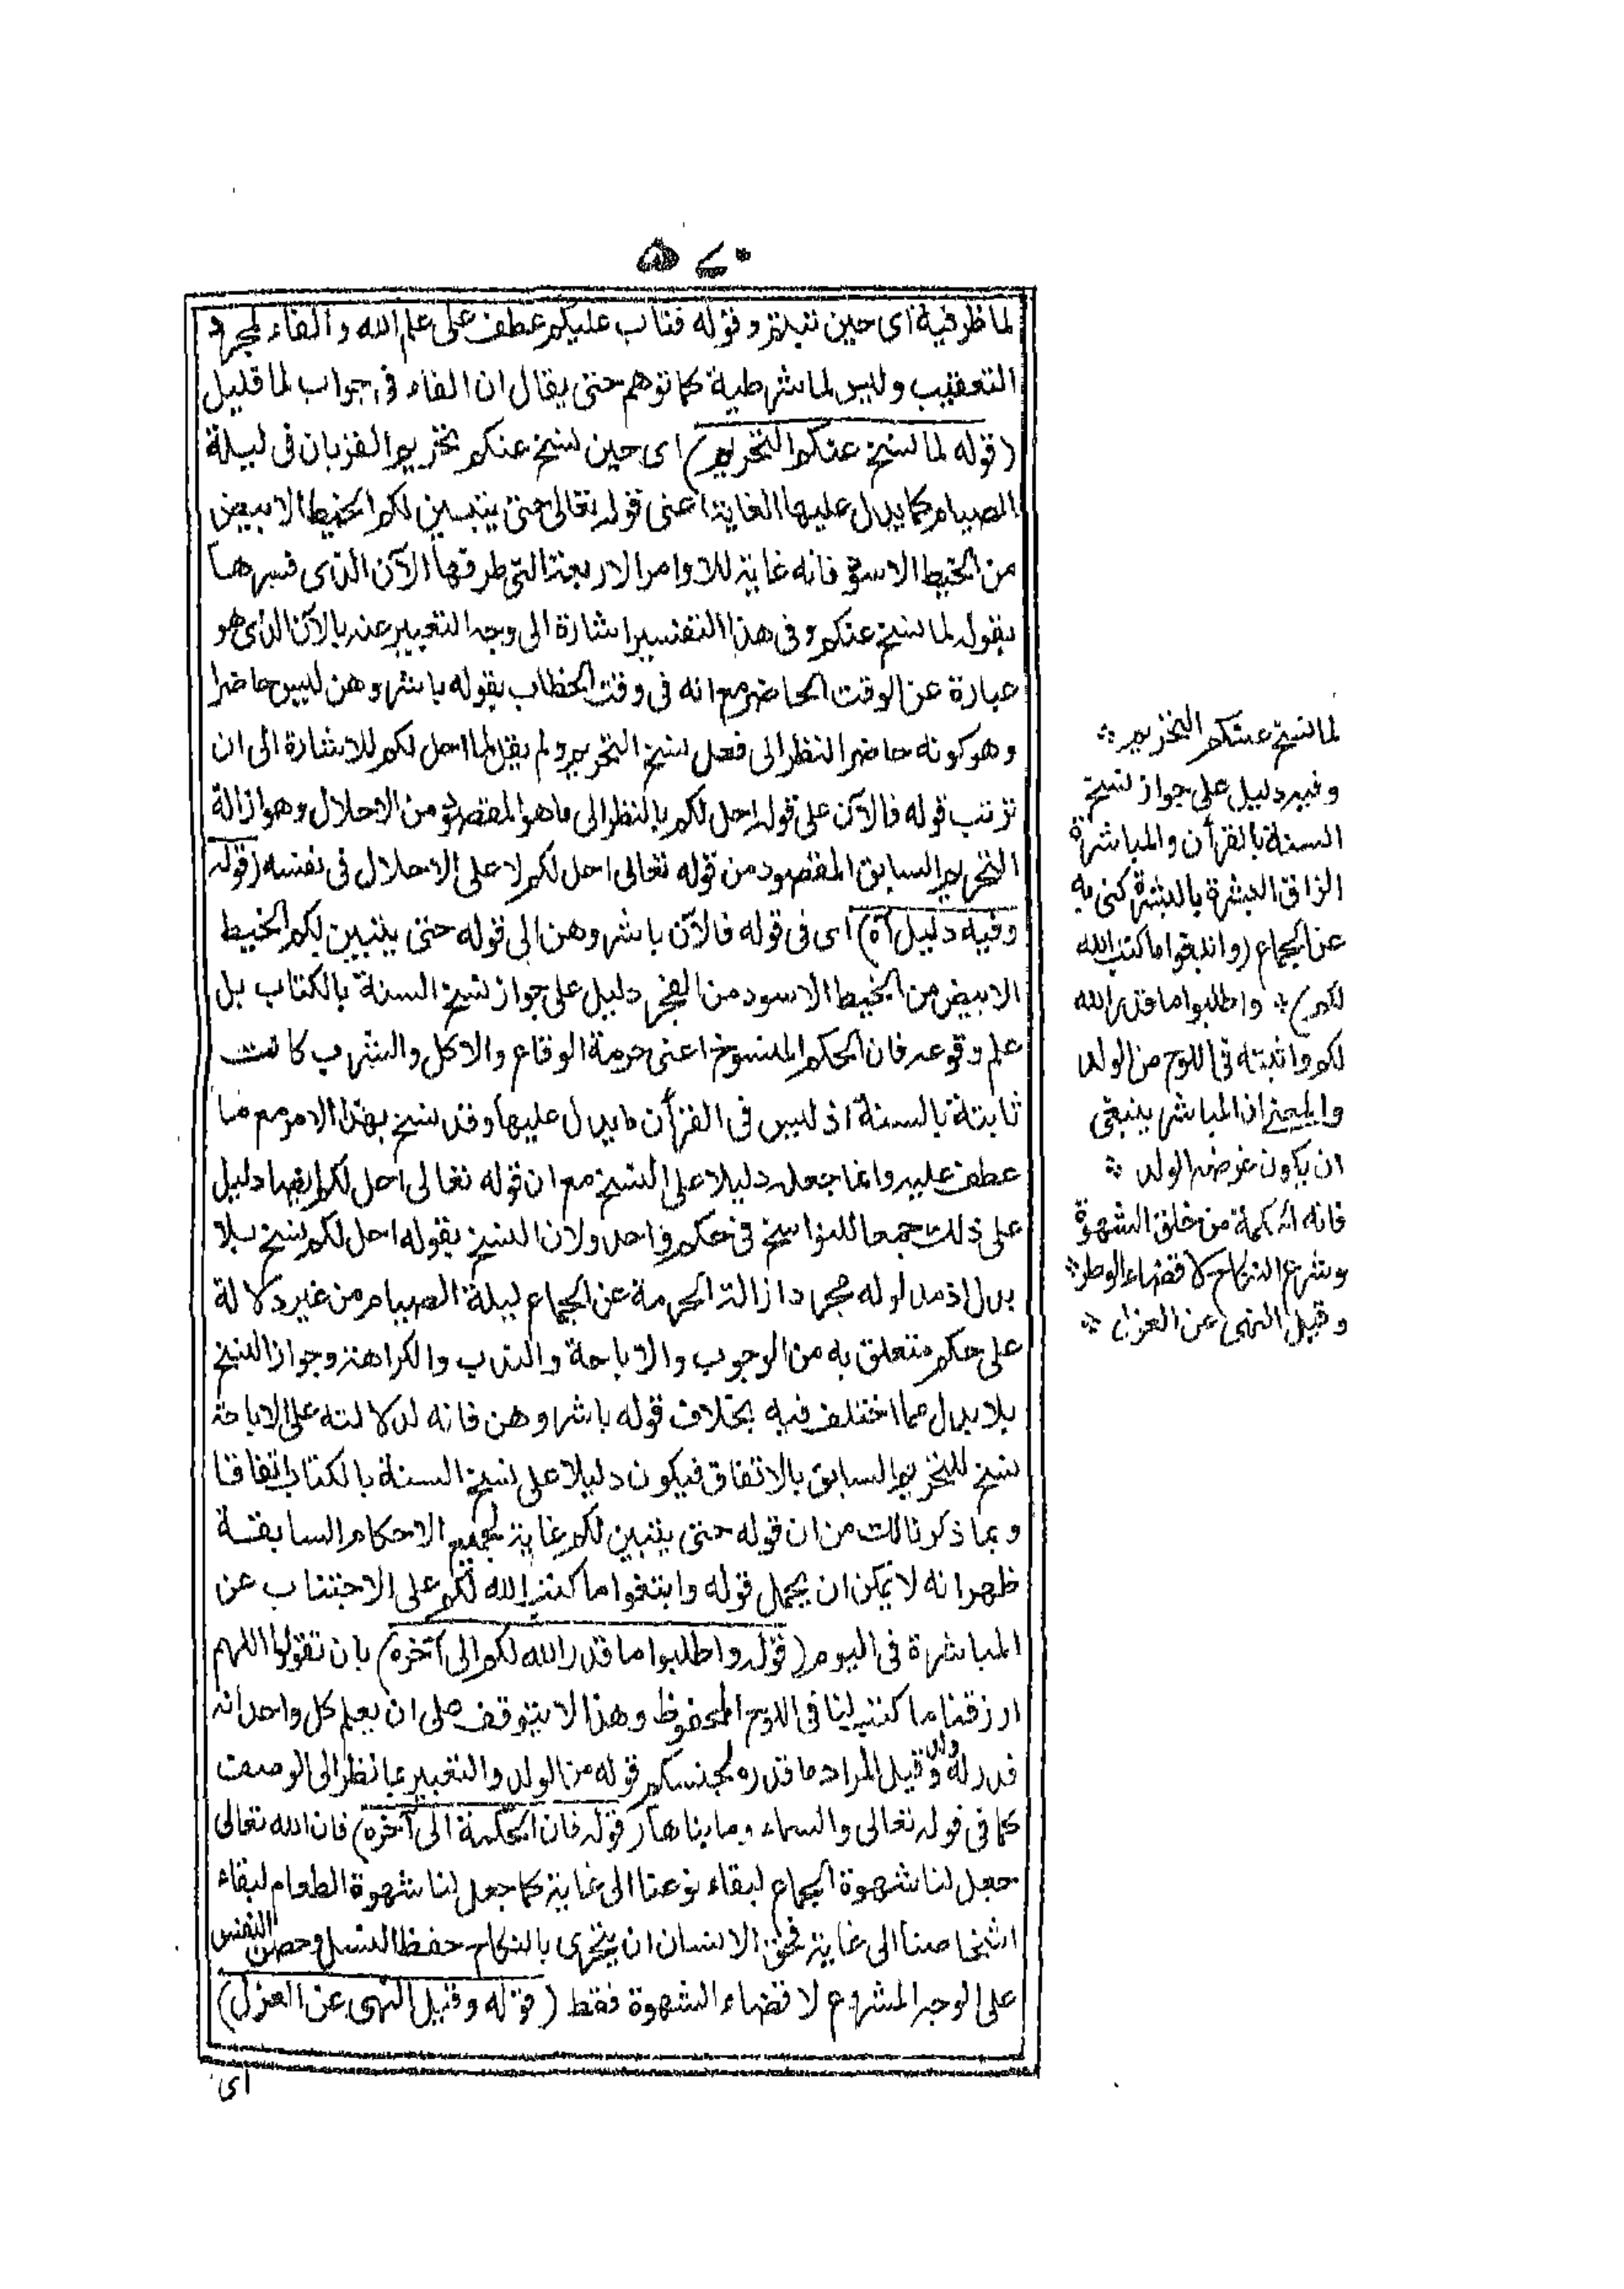 ٥٧٠
لما ظرفية اى حين تبتم وقوله فتاب عليكم عطف على علم الله والفاء لمجرد
التعقيب وليس لما شرطية كما توهم حتى يقال ان الفاء فى جواب لما قليل
(قوله لما نسخ عنكم التحريم) اى حين نسخ عنكم تحريم القربان فى ليلة
الصيام كما يدل عليها الغاية اعنى قوله تعالى حتى يتبين لكم الخيط الابيض
من الخيط الاسود فانه غاية للاوامر الاربعة التى ظرفها الآن الذى فسرها
بقوله لما نسخ عنكم وفى هذا التفسير اشارة الى وجه التعبير عنه بالآن الذى هو
عبارة عن الوقت الحاضر مع انه فى وقت الخطاب بقوله باشروهن ليس حاضرا
وهو كونه حاضر النظر الى فعل نسخ التحريم ولم يقل لما احل لكم للاشارة الى ان
ترتب قوله فالآن على قوله احل لكم بالنظر الى ما هو المقصود من الاحلال وهو ازالة
التحريم السابق المقصود من قوله تعالى احل لكم لا على الاحلال فى نفسه (قوله
وفيه دليل آه) اى فى قوله فالآن باشروهن الى قوله حتى يتبين لكم الخيط
الابيض من الخيط الاسود من الفجر دليل على جواز نسخ السنة بالكتاب بل
علم وقوعه فان الحكم المنسوخ اعنى حرمة الوقاع والاكل والشرب كانت
ثابتة بالسنة اذ ليس فى القرأن ما يدل عليها وقد نسخ بهذا الامر مع ما
عطف عليه وانما جعله دليلا على النسخ مع ان قوله تعالى احل لكم ايضا دليل
على ذلك جمعا للنواسخ فى حكم واحد ولان النسخ بقوله احل لكم نسخ بلا
بدل اذ مدلوله مجرد ازالة الحرمة عن الجماع ليلة الصيام من غير دلالة
على حكم متعلق به من الوجوب والاباحة والندب والكراهة وجواز النسخ
بلا بدل مما اختلف فيه بخلاف قوله باشروهن فانه لدلالته على الاباحة
نسخ للتحريم السابق بالاتفاق فيكون دليلا على نسخ السنة بالكتاب اتفاقا
وبما ذكرنا لك من ان قوله حتى يتبين لكم غاية لجميع الاحكام السابقة
ظهر انه لا يمكن ان يحمل قوله وابتغوا ما كتب الله لكم على الاجتناب عن
المباشرة فى اليوم (قوله واطلبوا ما قدر الله لكم الى آخره) بان تقولوا اللهم
ارزقنا ما كتبته لنا فى اللوح المحفوظ وهذا لا يتوقف على ان يعلم كل واحد انه
قدر له ولد وقيل المراد ما قدره لجنسكم قوله من الولد والتعبير بما نظرا الى الوصف
كما فى قوله تعالى والسماء وما بناها (قوله فان الحكمة الى آخره) فان الله تعالى
جعل لنا شهوة الجماع لبقاء نوعنا الى غاية كما جعل لنا شهوة الطعام لبقاء
اشخاصنا الى غاية فحق الانسان ان يتحرى بالنكاح حفظ النسل وحصن النفس
على الوجه المشروع لا قضاء الشهوة فقط (قوله وقيل النهى عن العزل)
اى
لما نسخ عنكم التحريم
وفيه دليل على جواز نسخ
السنة بالقرأن والمباشرة
الزاق البشرة بالبشرة كنى به
عن الجماع (وابتغوا ما كتب الله
لكم) واطلبوا ما قدر الله
لكم واثبته فى اللوح من الولد
والمعنى ان المباشر ينبغى
ان يكون غرضه الولد
فانه الحكمة من خلق الشهوة
وشرع النكاح لا قضاء الوطر
وقيل النهى عن العزل